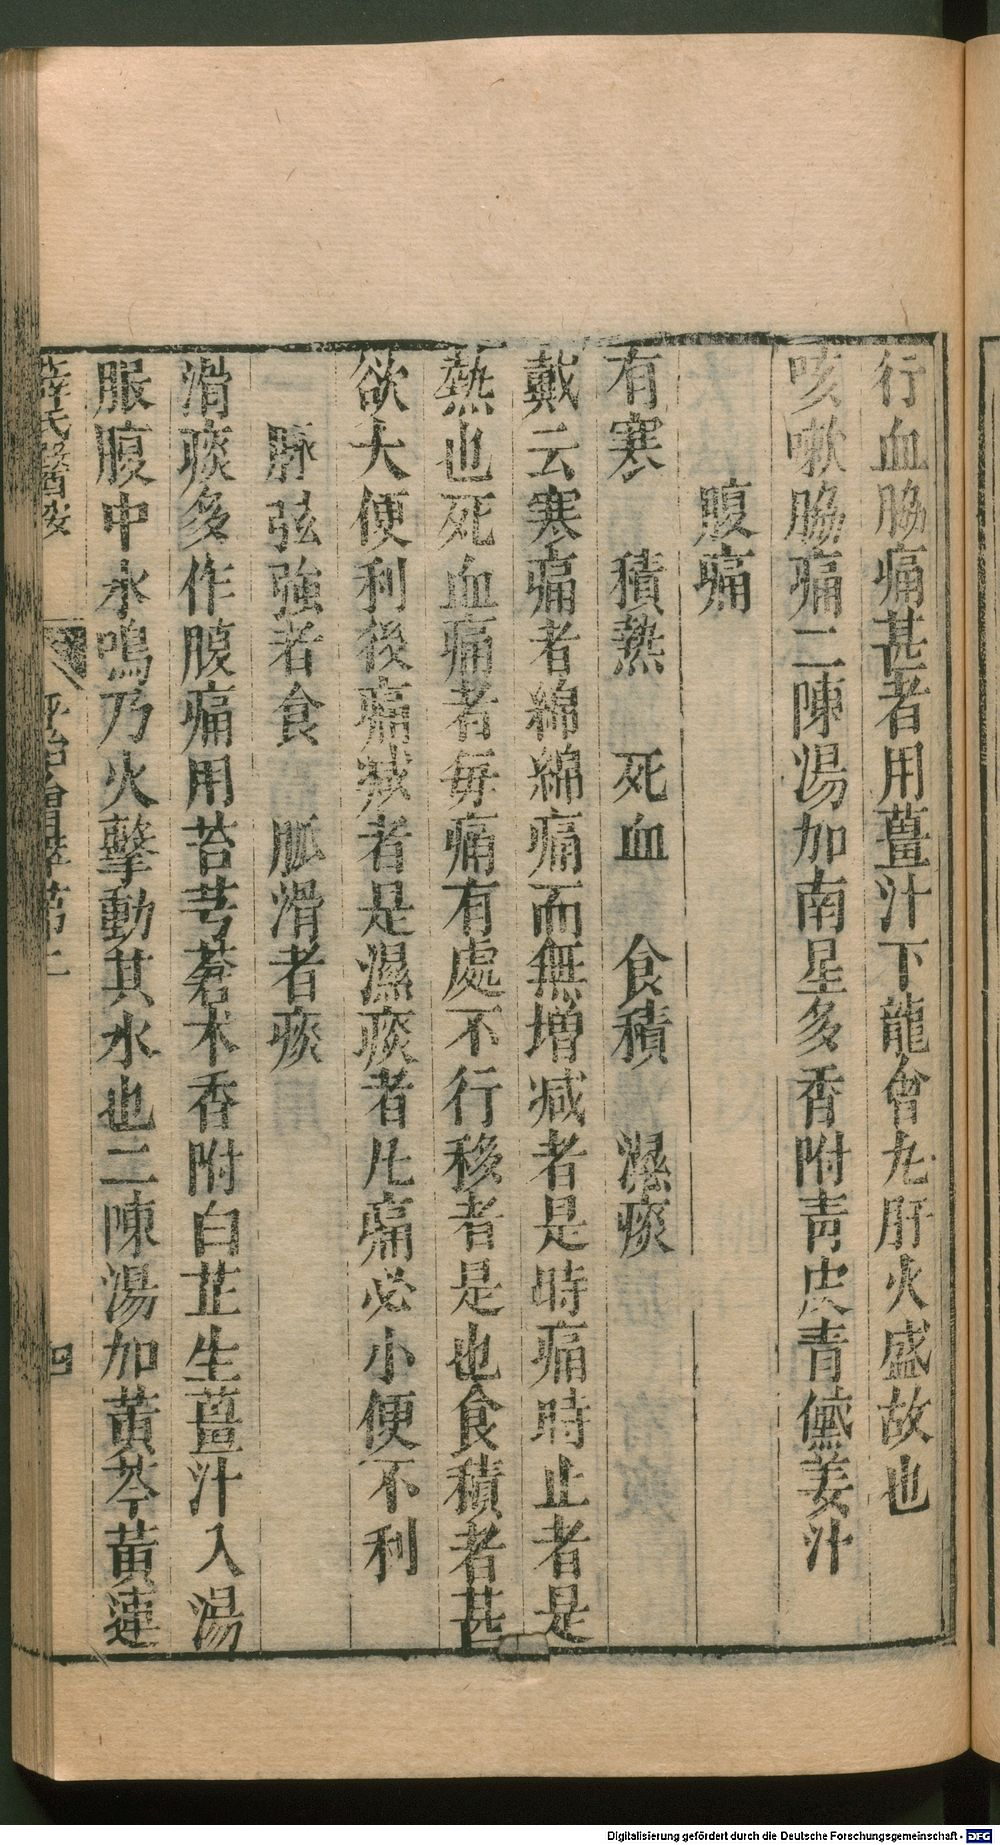 行血脇痛甚者用薑汁下龍會丸肝火盛故也
咳嗽脇痛二陳湯加南星多香附青皮青黛姜汁
腹痛
有寒 積熱 死血 食積 濕痰
戴云寒痛者綿綿痛而無增减者是時痛時止者是
熱也死血痛者每痛有處不行移者是也食積者甚
欲大便利後痛减者是濕痰者凡痛必小便不利
脉弦強者食 脉滑者痰
滑痰多作腹痛用苔芎蒼术香附白芷生薑汁入湯
服腹中水鳴乃火擊動其水也二陳湯加黃芩黃連
薛氏醫按 平治會萃第二 四
Digitalisierung gefördert durch die Deutsche Forschungsgemeinschaft - DFG